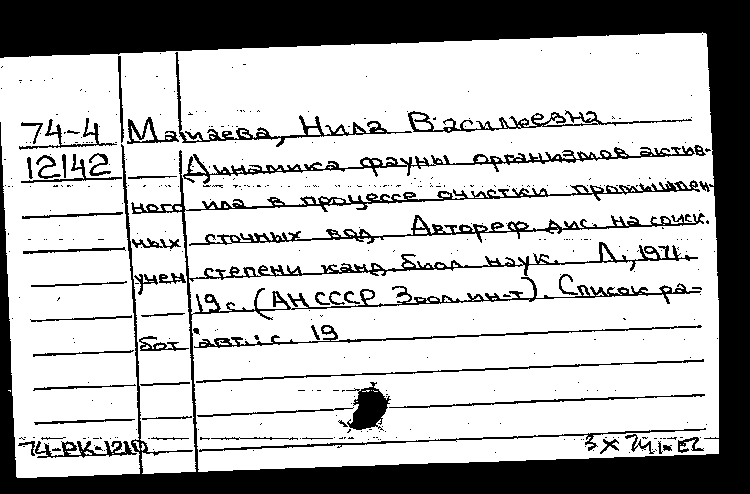 74-4 Матаева, Нила Васильевна.
12142 Динамика фауны организмов актив-
ного ила в процессе очистки промышлен-
ных сточных вод. Автореф. дис. на соиск.
учен степени канд. биол. наук. Л., 1971.
19 с. (АН СССР. Зоол. ин-т). Список ра-
бот авт.: с. 19
74-РК-1210.